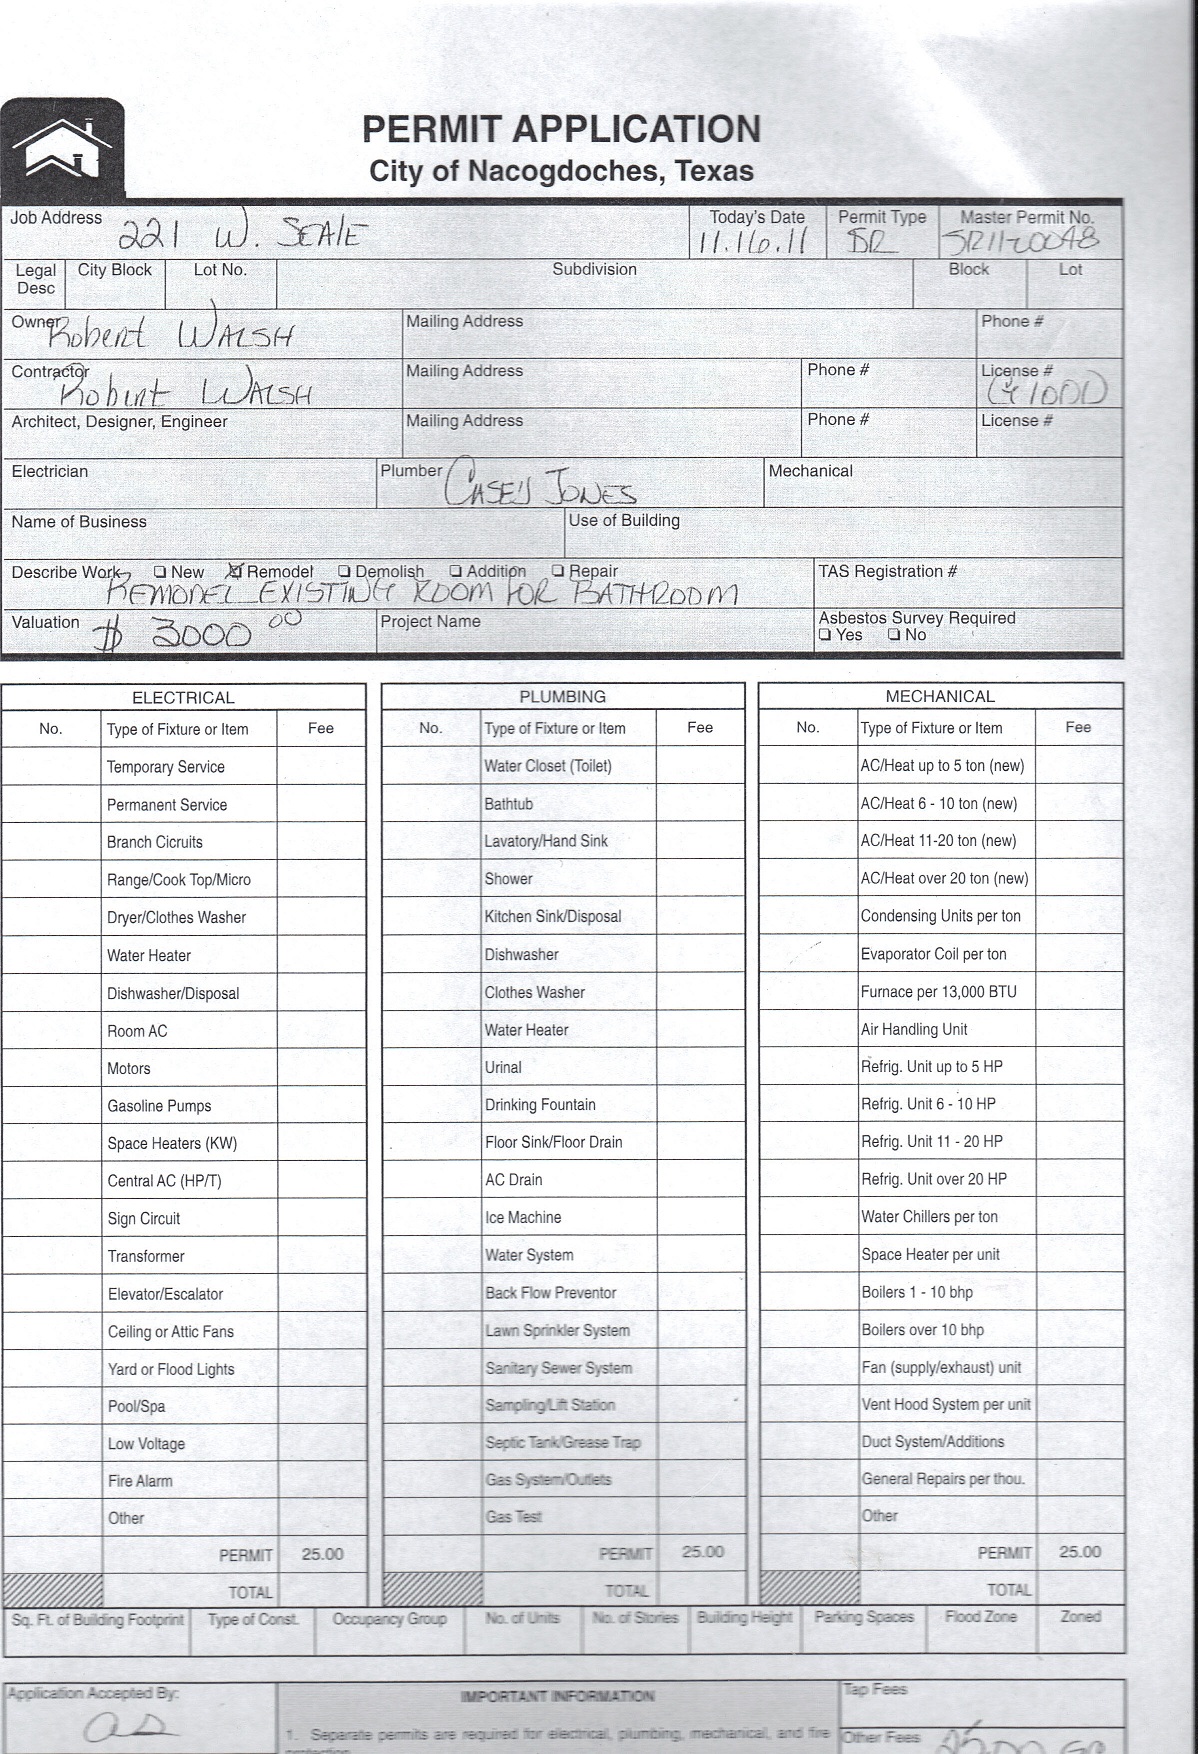 PERMIT APPLICATION
City of Nacogdoches, Texas
Job Address 221 W. SEALE Today's Date 11.16.11 Permit Type Master Permit No.
Legal Desc City Block Lot No. Subdivision Block Lot
Owner Robert WALSH Mailing Address Phone #
Contractor Robert WALSH Mailing Address Phone # License #
Architect, Designer, Engineer Mailing Address Phone # License #
Electrician Plumber CASEY JONES Mechanical
Name of Business Use of Building
Describe Work ❑ New ☒ Remodel ❑ Demolish ❑ Addition ❑ Repair TAS Registration #
REMODEL EXISTING ROOM FOR BATHROOM
Valuation $ 3000 00 Project Name Asbestos Survey Required
❑ Yes ❑ No
ELECTRICAL PLUMBING MECHANICAL
No. Type of Fixture or Item Fee No. Type of Fixture or Item Fee No. Type of Fixture or Item Fee
Temporary Service Water Closet (Toilet) AC/Heat up to 5 ton (new)
Permanent Service Bathtub AC/Heat 6 - 10 ton (new)
Branch Cicruits Lavatory/Hand Sink AC/Heat 11-20 ton (new)
Range/Cook Top/Micro Shower AC/Heat over 20 ton (new)
Dryer/Clothes Washer Kitchen Sink/Disposal Condensing Units per ton
Water Heater Dishwasher Evaporator Coil per ton
Dishwasher/Disposal Clothes Washer Furnace per 13,000 BTU
Room AC Water Heater Air Handling Unit
Motors Urinal Refrig. Unit up to 5 HP
Gasoline Pumps Drinking Fountain Refrig. Unit 6 - 10 HP
Space Heaters (KW) Floor Sink/Floor Drain Refrig. Unit 11 - 20 HP
Central AC (HP/T) AC Drain Refrig. Unit over 20 HP
Sign Circuit Ice Machine Water Chillers per ton
Transformer Water System Space Heater per unit
Elevator/Escalator Back Flow Preventor Boilers 1 - 10 bhp
Ceiling or Attic Fans Lawn Sprinkler System Boilers over 10 bhp
Yard or Flood Lights Sanitary Sewer System Fan (supply/exhaust) unit
Pool/Spa Sampling/Lift Station Vent Hood System per unit
Low Voltage Septic Tank/Grease Trap Duct System/Additions
Fire Alarm Gas System/Outlets General Repairs per thou.
Other Gas Test Other
PERMIT 25.00 PERMIT 25.00 PERMIT 25.00
TOTAL TOTAL TOTAL
Sq. Ft. of Building Footprint Type of Const. Occupancy Group No. of Units No. of Stories Building Height Parking Spaces Flood Zone Zoned
Application Accepted By: IMPORTANT INFORMATION Tap Fees
1. Separate permits are required for electrical, plumbing, mechanical, and fire Other Fees